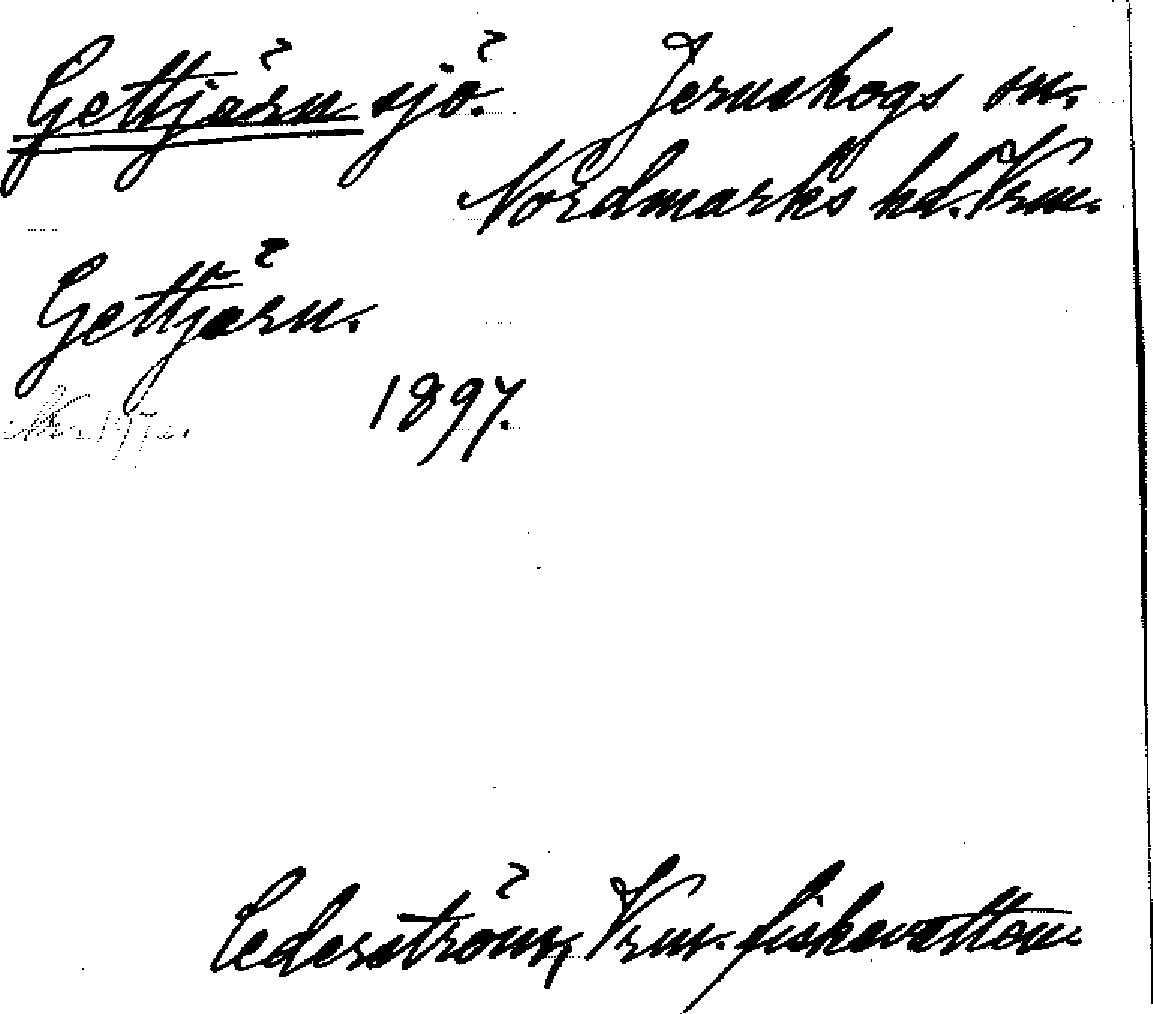 Gettjärn sjö. Jernskogs sn.
Nordmarks hd. Vrm.
Gettjärn.
1897.
Cederström, Vrm. fiskevatten.